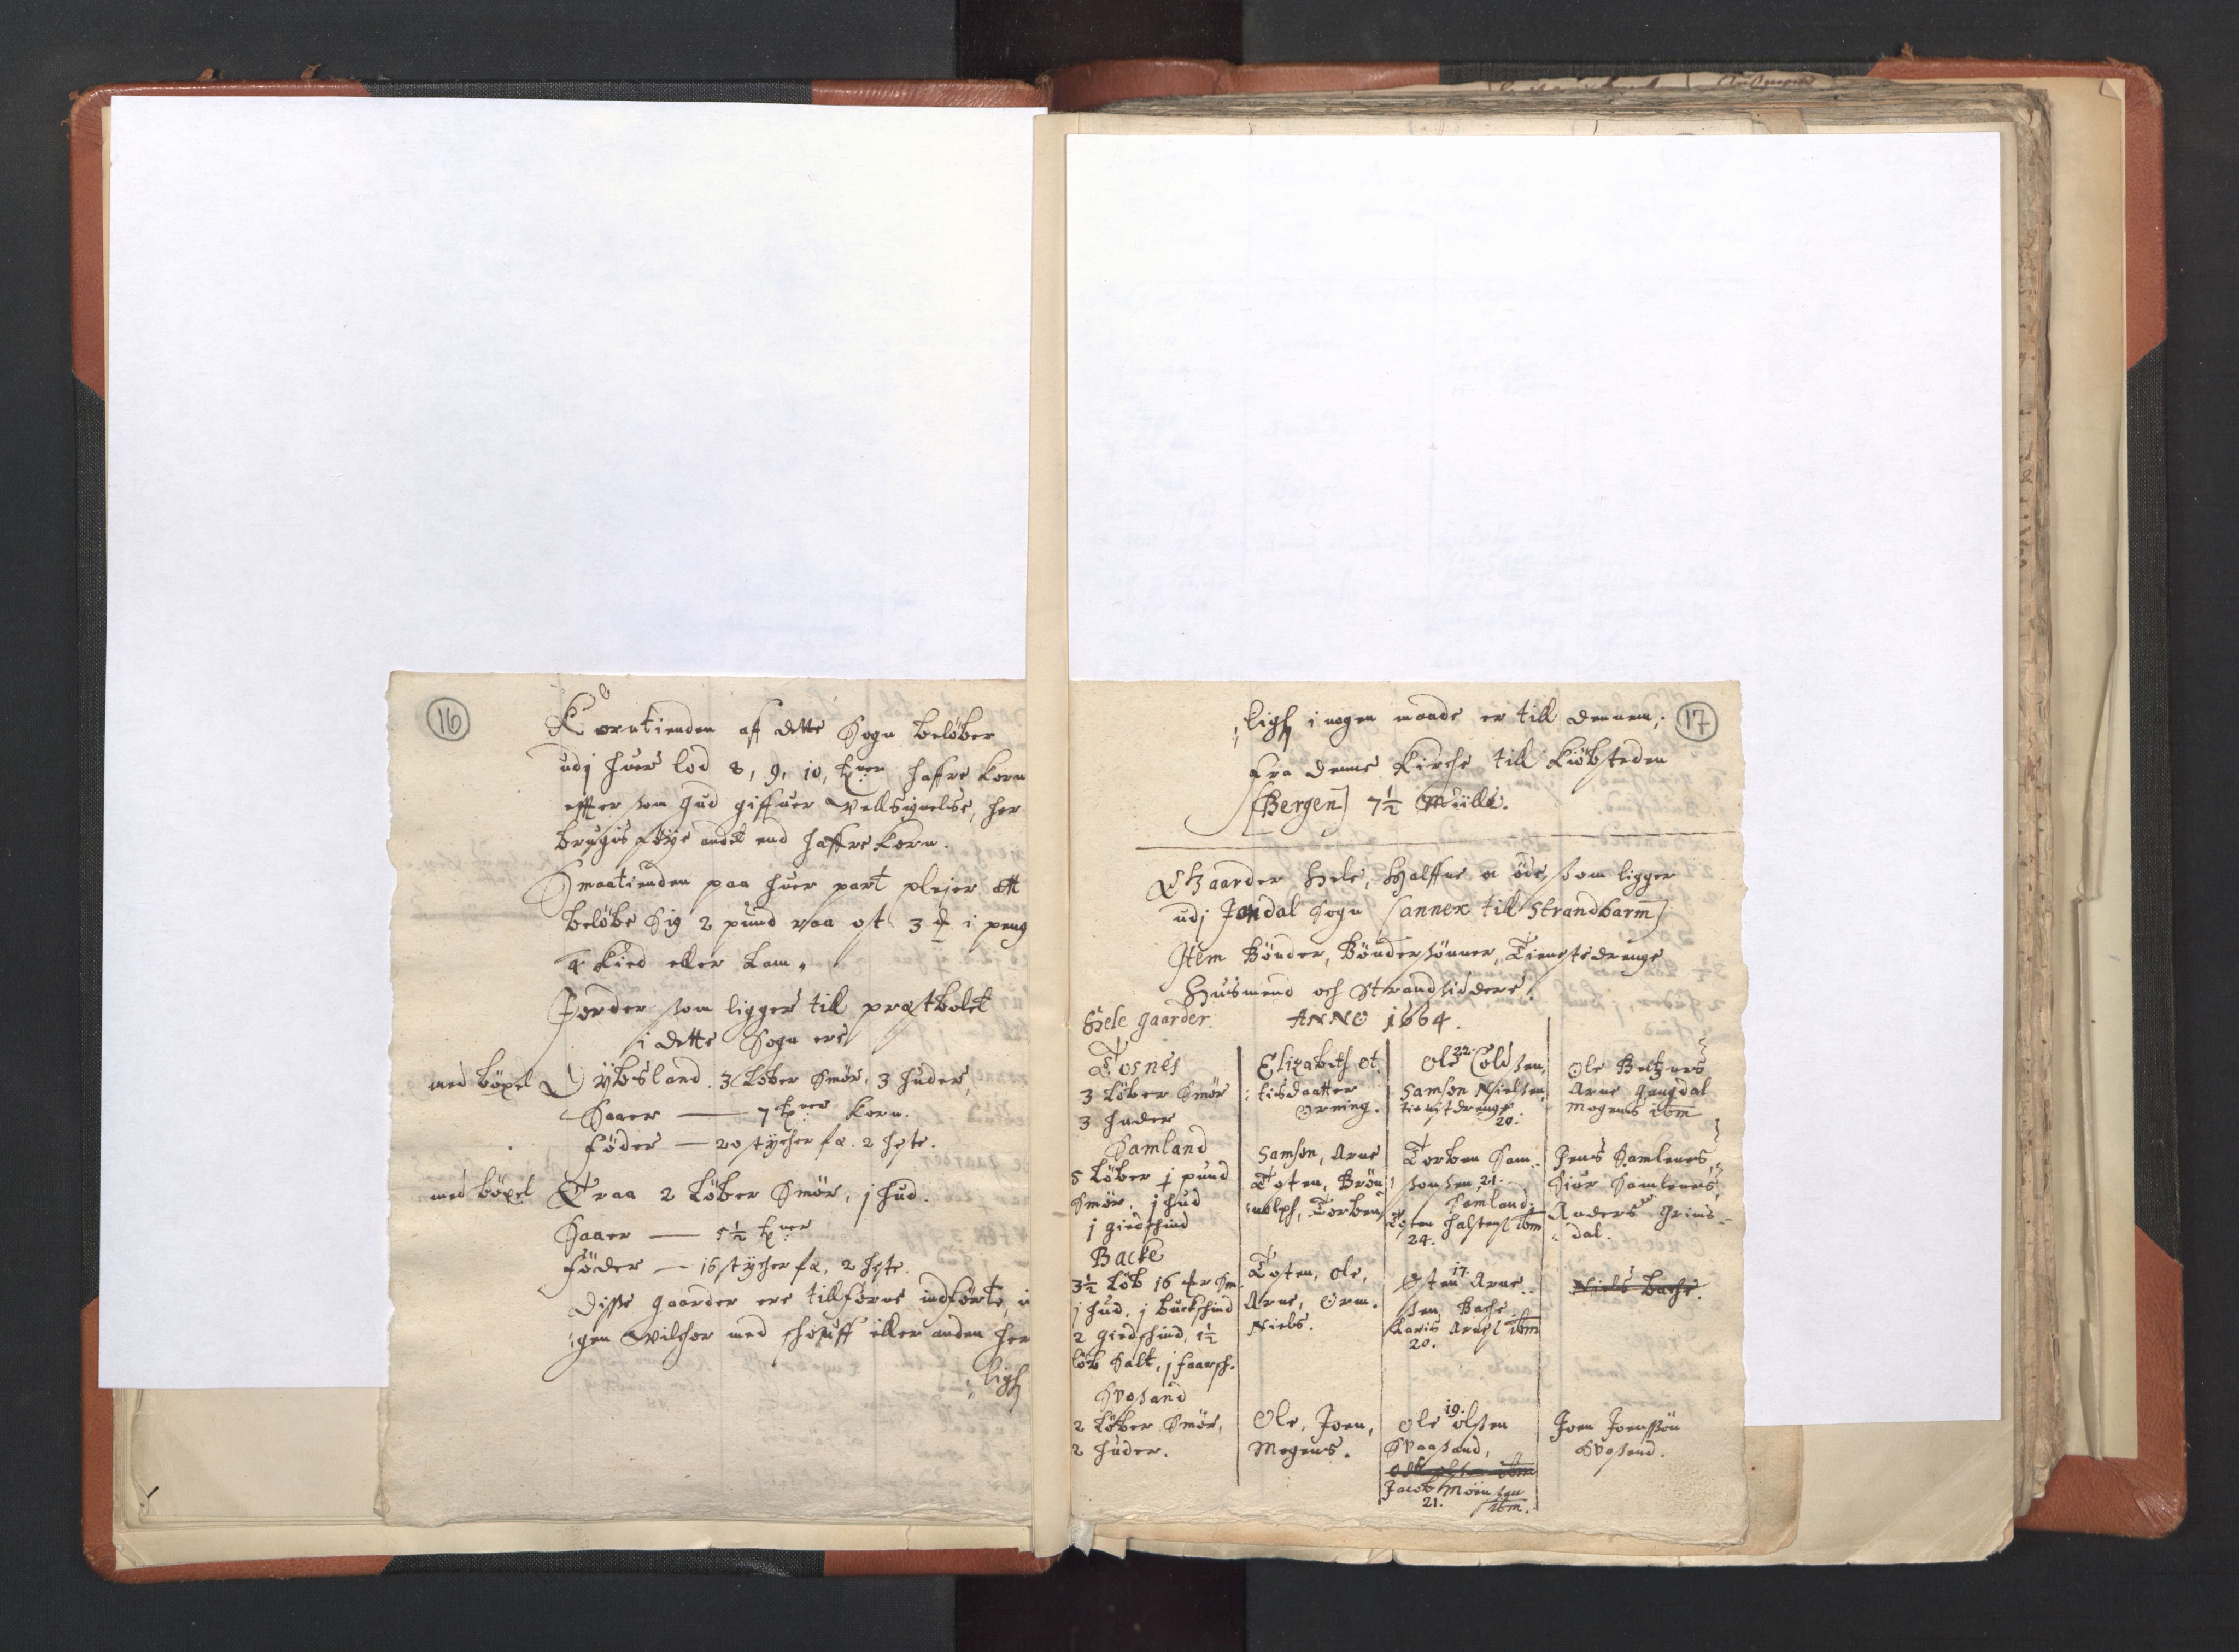 16
Korntienden aff dette Sogn beløber
udj huer lod 8, 9, 10, tner haffre korn
effter som Gud giffuer Velsignelse, her
brugis føye andet end haffre korn.
Smaatienden paa huer part plejer att
beløbe sig 2 pund raa ost 3 i peng
4 Kied eller Lam.
Jorder som ligger till præstbolet
i dette Sogn ere
med böxel Ybsland. 3 Løber Smør, 3 huder,
Saaer — 7 tner korn.
Føder — 20 stycher fæ. 2 heste.
med böxel Traa 2 Løber Smør, j hud.
Saaer — 5½ tner
Føder — 16 stycher fæ, 2 heste.
Disse gaarder ere tillforne indførte, i
gen Vilchor med schouff eller anden her
ligh
17
ligh i nogen maade er till dennem.
Fra denne Kirche till Kiøbsteden
[Bergen] 7½ Miille.
Gaarder Hele, Halffue oc øde som ligger
udj Jondal Sogn (annex till Strandbarm)
Item Bønder, Bøndersønner, Tienistedrenge
Husmend och Strandsiddere.
Hele gaarder. ANNO 1664.
Tosnes
3 Løber Smør
3 huder
Elizabeth Ot
tisdaatter
Orning.
22.
Ole Coldsen,
Samson Nielsen
tienistdreng
20.
Ole Beltznes
Arne Gangdal
Mogens ibm
Samland
5 Løber j pund
Smør. j hud
j giedschind
Samson, Arne
Tosten, Brøn
nolph, Torben
Torben Sam
sonsen 21.
Samland,
Tosten halstens. ibm
24.
Jens Samlenes,
Siur Samlenes,
Anders Grims
dal.
Backe
3½ Løb 16 mr Sm.
j hud, j buckschind
2 giedschind, 1½
løb Salt, j faarsch.
Tosten, Ole,
Arne, Orm.
Niels.
17.
Østen Arne
sen Bache
ibm
20.
Niels Bache.
Svosand
2 Løber Smør,
2 huder.
Ole, Joen,
Mogens.
19.
Ole olsen
Svaasand,
Jacob Mønsen
21. ibm.
Joen Joenssøn
Svosand.